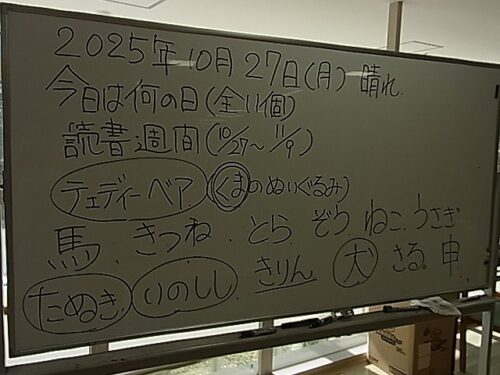 2025年10月27日(月) 晴れ.
今日は何の日(全11個)
読書週間(10/27～11/9)
テェディーベア (くまのぬいぐるみ)
馬. きつね. とら. ぞう. ねこ. うさぎ
たぬき. いのしし. きりん. 犬 さる。申